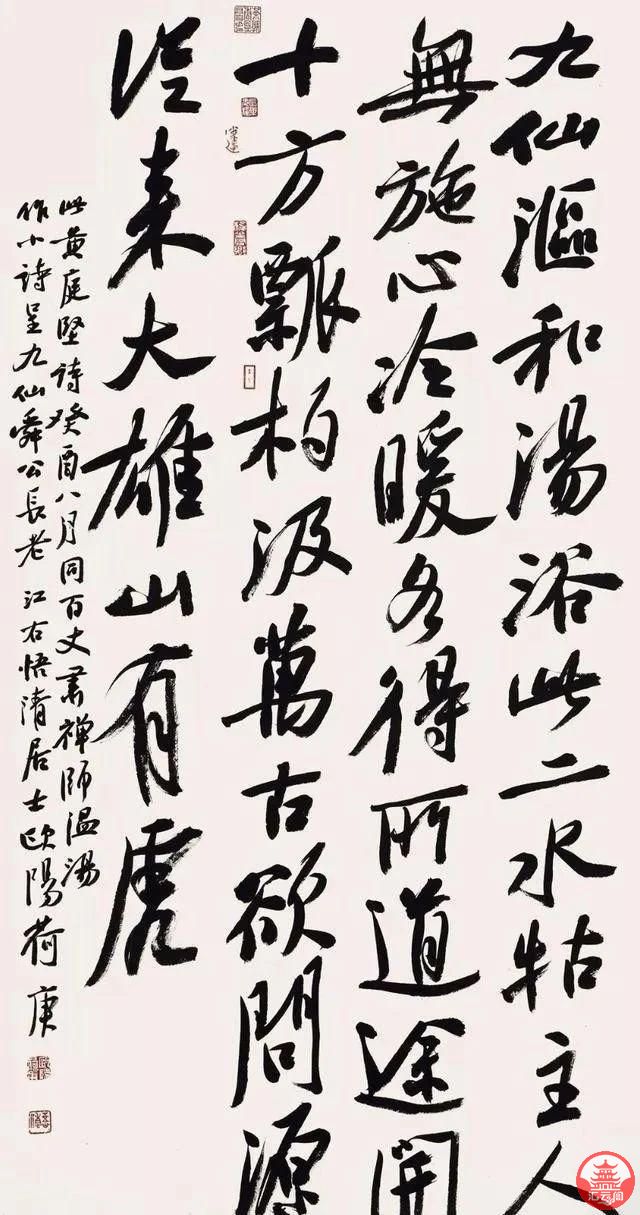 九仙漚和湯浴此二水牯主人
無施心冷暖各得所道途開
十方瓢柏汲萬古欲問源
從来大雄山有虎
此黄庭堅詩癸酉八月同百丈肅禅師温湯
作小詩呈九仙舜公長老 江右悟清居士歐陽荷庚
汇云阁